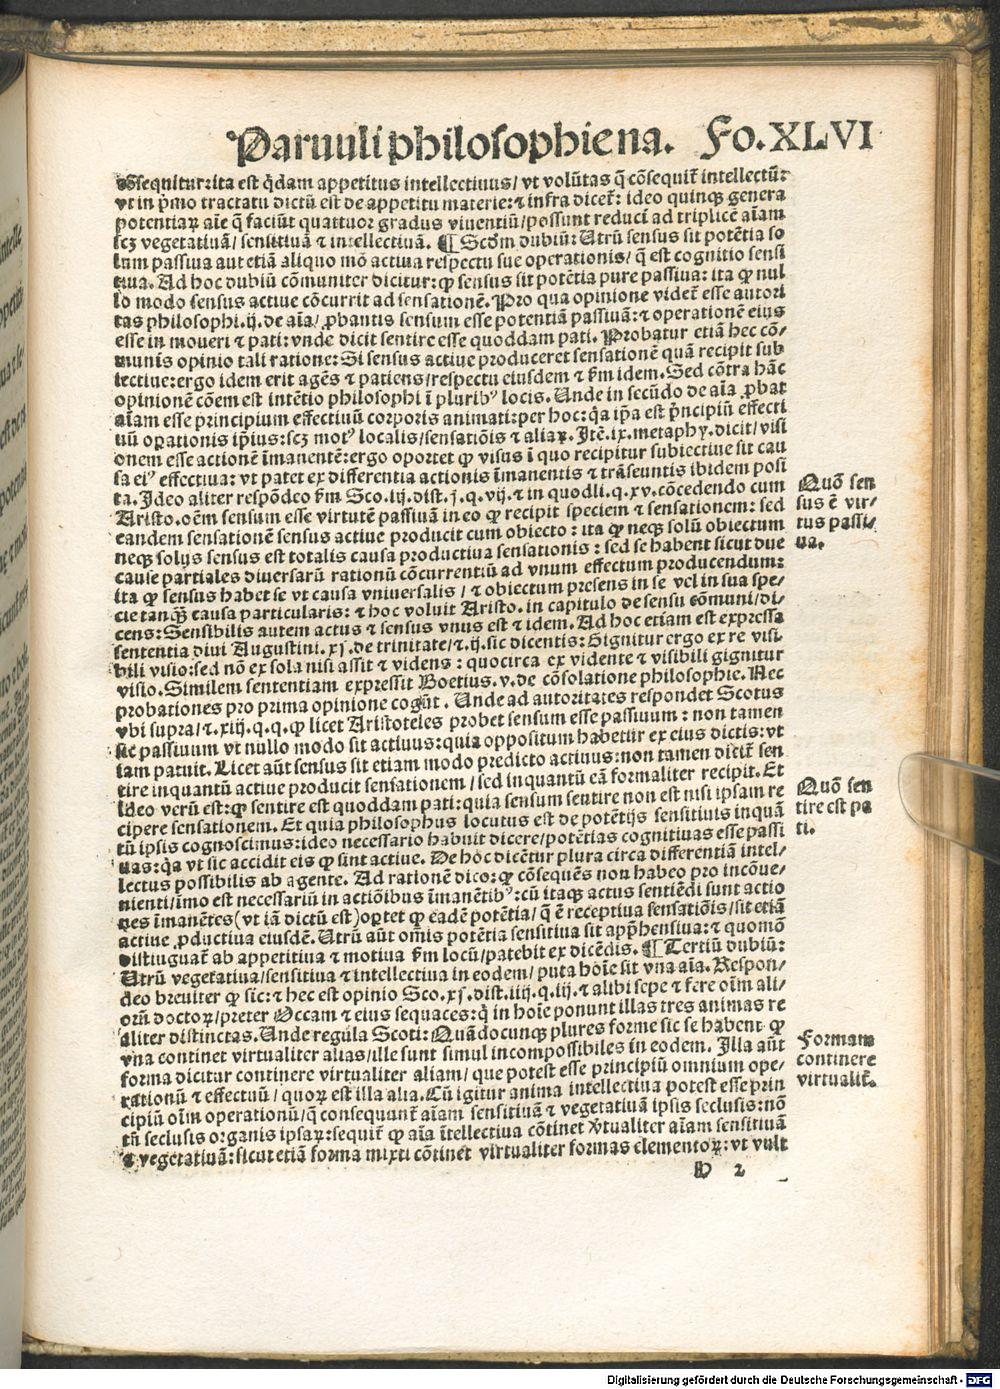 Paruuli philosophie na. Fo. XLVI
cōsequitur: ita est q̄dam appetitus intellectiuus/ vt volūtas q̄ cōsequit̄ intellectū:
vt in p̄mo tractatu dictū est de appetitu materie: ⁊ infra dicet̄: ideo quinqꝫ genera
potentiaꝝ aīe q̄ faciūt quattuor gradus viuentiū/ possunt reduci ad triplicē aīam
scꝫ vegetatiuā/ sensitiuā ⁊ intellectiuā. ¶ Scd̄m dubiū: Utrū sensus sit potētia so
lum passiua aut etiā aliquo mō actiua respectu sue operationis/ q̄ est cognitio sensi
tiua. Ad hoc dubiū cōmuniter dicitur: ꝙ sensus sit potētia pure passiua: ita ꝙ nul
lo modo sensus actiue cōcurrit ad sensationē. Pro qua opinione videt̄ esse autori
tas philosophi .ij. de aīa/ ꝓbantis sensum esse potentiā passiuā: ⁊ operationē eius
esse in moueri ⁊ pati: vnde dicit sentire esse quoddam pati. Probatur etiā hec cō⸗
munis opinio tali ratione: Si sensus actiue produceret sensationē quā recipit sub
iectiue: ergo idem erit agēs ⁊ patiens/ respectu eiusdem ⁊ ẜm idem. Sed cōtra hāc
opinionē cōem est intētio philosophi ī pluribꝰ locis. Unde in secūdo de aīa ꝓbat
aīam esse principium effectiuū corporis animati: per hoc: q̄a ip̄a est p̄ncipiū effecti
uū oꝑationis ip̄ius: scꝫ motꝰ localis/ sensatiōis ⁊ aliaꝝ. Itē .ix. metaphy. dicit/ visi
onem esse actionē īmanentē: ergo oportet ꝙ visus ī quo recipitur subiectiue sit cau
sa eiꝰ effectiua: vt patet ex differentia actionis īmanentis ⁊ trāseuntis ibidem posi
ta. Ideo aliter respōdeo ẜm Sco. iij. dist. j. q. vij. ⁊ in quodli. q. xv. cōcedendo cum
Aristo. oēm sensum esse virtutē passiuā in eo ꝙ recipit speciem ⁊ sensationem: sed
eandem sensationē sensus actiue producit cum obiecto: ita ꝙ neqꝫ solū obiectum
neqꝫ solus sensus est totalis causa productiua sensationis: sed se habent sicut due
cause partiales diuersarū rationū cōcurrentiū ad vnum effectum producendum:
ita ꝙ sensus habet se vt causa vniuersalis/ ⁊ obiectum presens in se vel in sua spe⸗
cie tanqꝫ̄ causa particularis: ⁊ hoc voluit Aristo. in capitulo de sensu cōmuni/ di⸗
cens: Sensibilis autem actus ⁊ sensus vnus est ⁊ idem. Ad hoc etiam est expressa
sententia diui Augustini. xj. de trinitate/ ⁊ .ij. sic dicentis: Gignitur ergo ex re visi⸗
bili visio: sed nō ex sola nisi assit ⁊ videns: quocirca ex vidente ⁊ visibili gignitur
visio. Similem sententiam expressit Boetius. v. de cōsolatione philosophie. Nec
probationes pro prima opinione cogūt. Unde ad autoritates respondet Scotus
vbi supra/ ⁊ .xiij. q. q. ꝙ licet Aristoteles probet sensum esse passiuum: non tamen
sic passiuum vt nullo modo sit actiuus: quia oppositum habetur ex eius dictis: vt
iam patuit. Licet aūt sensus sit etiam modo predicto actiuus: non tamen dicit̄ sen
tire inquantū actiue producit sensationem/ sed inquantū eā formaliter recipit. Et
ideo verū est: ꝙ sentire est quoddam pati: quia sensum sentire non est nisi ipsam re
cipere sensationem. Et quia philosophus locutus est de potētijs sensitiuis inquā
tū ipsis cognoscimus: ideo necessario habuit dicere/ potētias cognitiuas esse passi
uas: q̄a vt sic accidit eis ꝙ sint actiue. De hoc dicētur plura circa differentiā intel⸗
lectus possibilis ab agente. Ad rationē dico: ꝙ cōsequēs non habeo pro incōue⸗
nienti/ īmo est necessariū in actiōibus īmanētibꝰ: cū itaqꝫ actus sentiēdi sunt actio
nes īmanētes (vt iā dictū est) oꝑtet ꝙ eadē potētia/ q̄ ē receptiua sensatiōis/ sit etiā
actiue ꝓductiua eiusdē. Utrū aūt om̄is potētia sensitiua sit app̄hensiua: ⁊ quomō
distinguat̄ ab appetitiua ⁊ motiua ẜm locū/ patebit ex dicēdis. ¶ Tertiū dubiū:
Utrū vegetatiua/ sensitiua ⁊ intellectiua in eodem/ puta hoīe sit vna aīa. Respon⸗
deo breuiter ꝙ sic: ⁊ hec est opinio Sco. xj. dist. iiij. q. iij. ⁊ alibi sepe ⁊ fere oīm ali⸗
orū doctoꝝ/ preter Occam ⁊ eius sequaces: q̄ in hoīe ponunt illas tres animas re
aliter distinctas. Unde regula Scoti: Quādocunqꝫ plures forme sic se habent ꝙ
vna continet virtualiter alias/ ille sunt simul incompossibiles in eodem. Illa aūt
forma dicitur continere virtualiter aliam/ que potest esse principiū omnium ope⸗
rationū ⁊ effectuū/ quoꝝ est illa alia. Cū igitur anima intellectiua potest esse prin
cipiū oīm operationū/ q̄ consequant̄ aīam sensitiuā ⁊ vegetatiuā ipsis seclusis: nō
tn̄ seclusis organis ipsaꝝ: sequit̄ ꝙ aīa ītellectiua cōtinet v̄tualiter aīam sensitiuā
⁊ vegetatiuā: sicut etiā forma mixti cōtinet virtualiter formas elementoꝝ: vt vult
Quō sen
sus ē vir⸗
tus passi⸗
ua.
Quō sen
tire est pa
ti.
Formam
continere
virtualit̄.
H 2
Digitalisierung gefördert durch die Deutsche Forschungsgemeinschaft - DFG